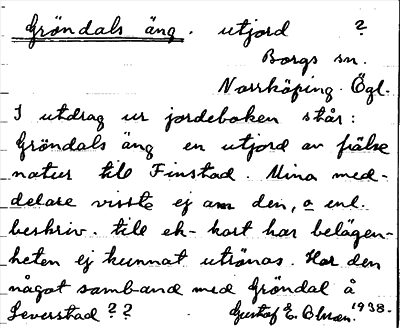 Gröndals äng. utjord ?
Borgs sn.
Norrköping. Ögl.
I utdrag ur jordeboken står:
Gröndals äng en utjord av frälse
natur till Finstad. Mina med-
delare visste ej om den, o enl.
beskriv. till ek- kart har belägen-
heten ej kunnat utrönas. Har den
något samband med Gröndal å
Leverstad ??
Gustaf E. Olsson. 1938.